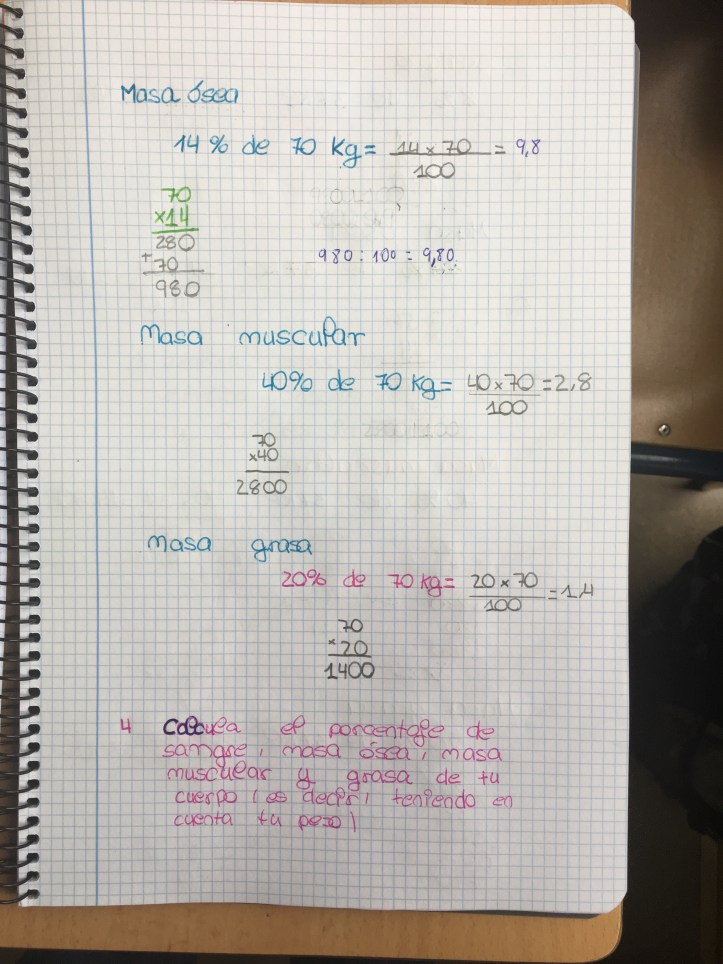 Masa ósea
14% de 70 Kg = 14 x 70 / 100 = 9,8
70
x14
280
+ 70
980
980 : 100 = 9,80
Masa muscular
40% de 70 Kg = 40 x 70 / 100 = 2,8
70
x40
2800
Masa grasa
20% de 70 Kg = 20 x 70 / 100 = 1,4
70
x 20
1400
4 Calcula el porcentaje de
sangre, masa ósea, masa
muscular y grasa de tu
cuerpo (es decir, teniendo en
cuenta tu peso)